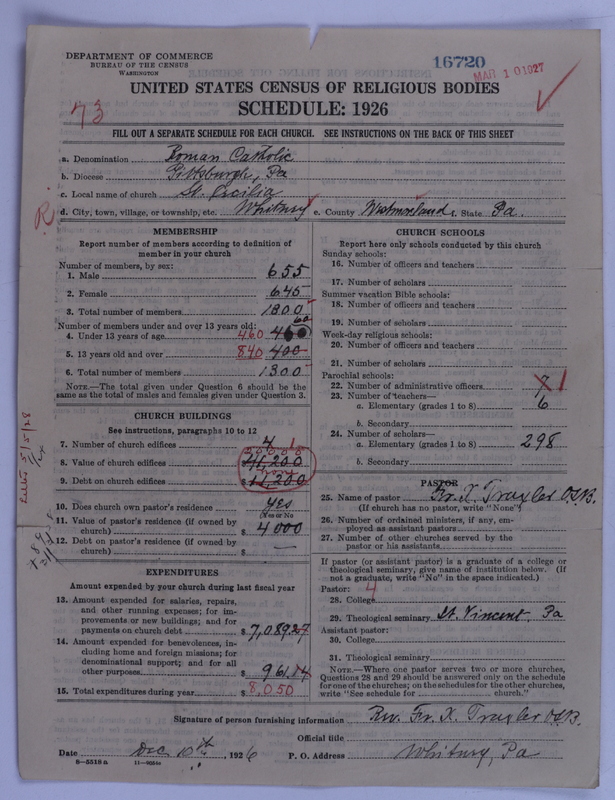 DEPARTMENT OF COMMERCE
BUREAU OF THE CENSUS
WASHINGTON
16720
MAR 10 1927
UNITED STATES CENSUS OF RELIGIOUS BODIES
SCHEDULE: 1926
73
FILL OUT A SEPARATE SCHEDULE FOR EACH CHURCH. SEE INSTRUCTIONS ON THE BACK OF THIS SHEET
a. Denomination Roman Catholic
b. Diocese Pittsburgh, Pa
c. Local name of church St. Cecilia
d. City, town, village, or township, etc. Whitney e. County Westmoreland f. State Pa.
R
MEMBERSHIP
Report number of members according to definition of
member in your church
Number of members, by sex:
1. Male 655
2. Female 645
3. Total number of members 1300
Number of members under and over 13 years old:
4. Under 13 years of age 460
5. 13 years old and over 840 400
6. Total number of members 1300
NOTE.—The total given under Question 6 should be the
same as the total of males and females given under Question 3.
CHURCH BUILDINGS
See instructions, paragraphs 10 to 12
7. Number of church edifices 4 1
8. Value of church edifices 41,200
9. Debt on church edifices $ 11,200
10. Does church own pastor's residence yes
(Yes or No
11. Value of pastor's residence (if owned by
church) $ 4000
12. Debt on pastor's residence (if owned by
church) $ —
EXPENDITURES
Amount expended by your church during last fiscal year
13. Amount expended for salaries, repairs,
and other running expenses; for im-
provements or new buildings; and for
payments on church debt $ 7,089.27
14. Amount expended for benevolences, in-
cluding home and foreign missions; for
denominational support; and for all
other purposes $ 961.14
15. Total expenditures during year $ 8,050
CHURCH SCHOOLS
Report here only schools conducted by this church
Sunday schools:
16. Number of officers and teachers
17. Number of scholars
Summer vacation Bible schools:
18. Number of officers and teachers
19. Number of scholars
Week-day religious schools:
20. Number of officers and teachers
21. Number of scholars
Parochial schools:
22. Number of administrative officers 7 1
23. Number of teachers—
a. Elementary (grades 1 to 8) 6
b. Secondary
24. Number of scholars—
a. Elementary (grades 1 to 8) 298
b. Secondary
PASTOR
25. Name of pastor Fr. X. Traxler O.S.B.
(If church has no pastor, write "None")
26. Number of ordained ministers, if any, em-
ployed as assistant pastors
27. Number of other churches served by the
pastor or his assistants
If pastor (or assistant pastor) is a graduate of a college or
theological seminary, give name of institution below. (If
not a graduate, write "No" in the space indicated.)
Pastor: 4
28. College
29. Theological seminary St. Vincent, Pa
Assistant pastor:
30. College
31. Theological seminary
NOTE.—Where one pastor serves two or more churches,
Questions 28 and 29 should be answered only on the schedule
for one of the churches; on the schedules for the other churches,
write "See schedule for church."
Signature of person furnishing information Rev. Fr. X. Traxler O.S.B.
Official title
Date Dec 10th, 1926 P. O. Address Whitney, Pa
8—5518 a